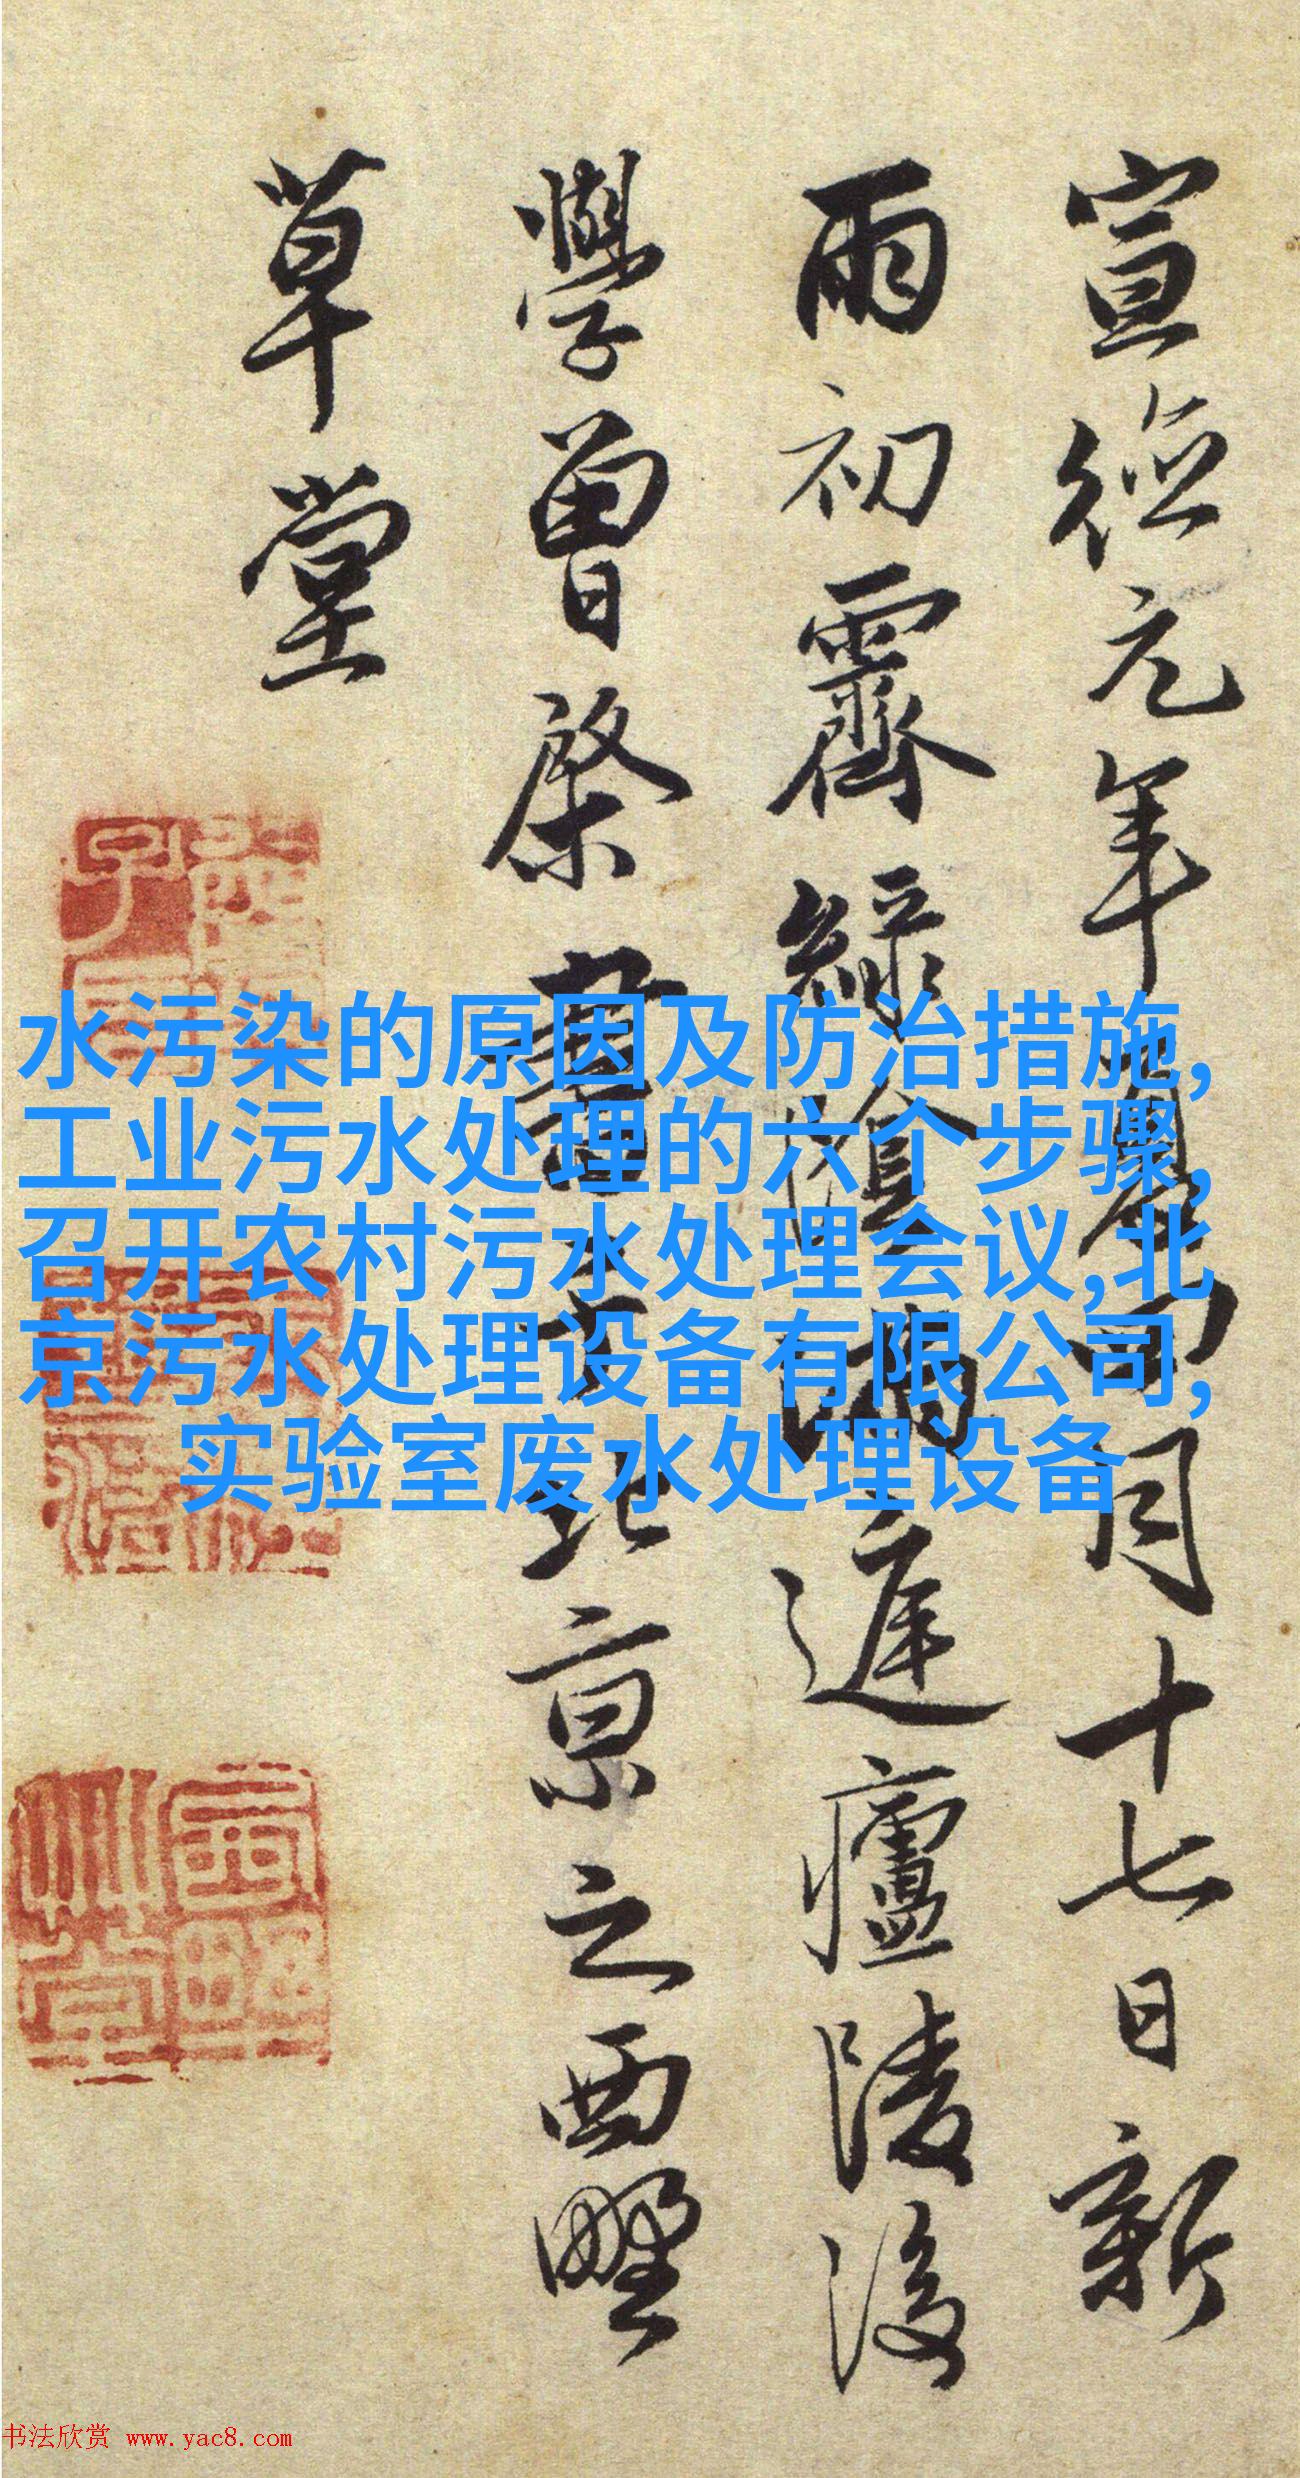 宣德元年夏四月十七日新
雨初霽綠陰滿庭廬陵後
學曾棨書于北京之西墅
草堂
水污染的原因及防治措施,
工业污水处理的六个步骤,
召开农村污水处理会议,北
京污水处理设备有限公司,
实验室废水处理设备
书法欣赏 www.yac8.com